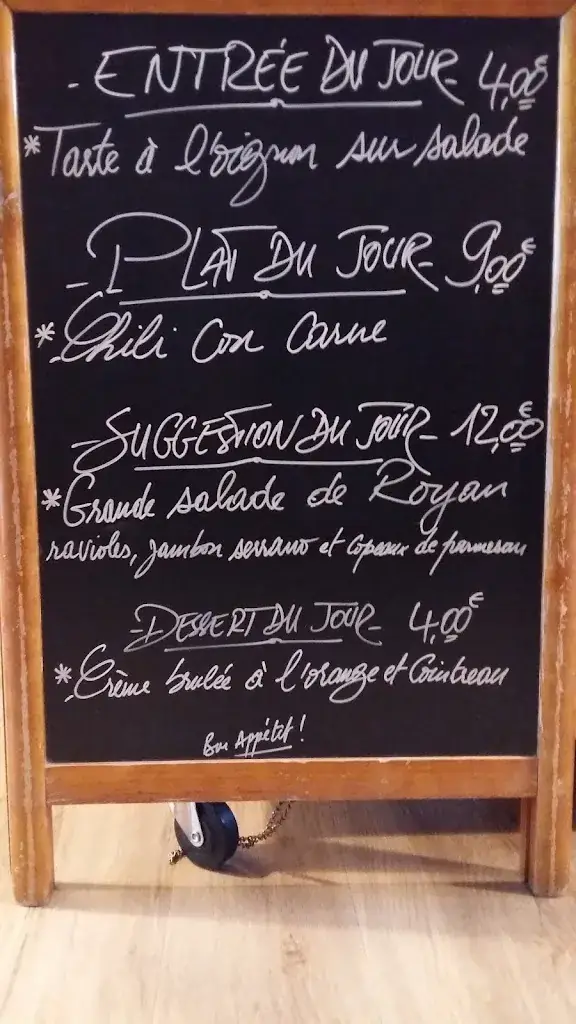 - ENTRÉE DU JOUR - 4,00€
* Tarte à l'oignon sur salade
- PLAT DU JOUR - 9,00€
* Chili Con Carne
- SUGGESTION DU JOUR - 12,00€
* Grande salade de Royan
ravioles, jambon serrano et copeaux de parmesan
- DESSERT DU JOUR - 4,00€
* Crème brulée à l'orange et Cointreau
Bon Appétit !